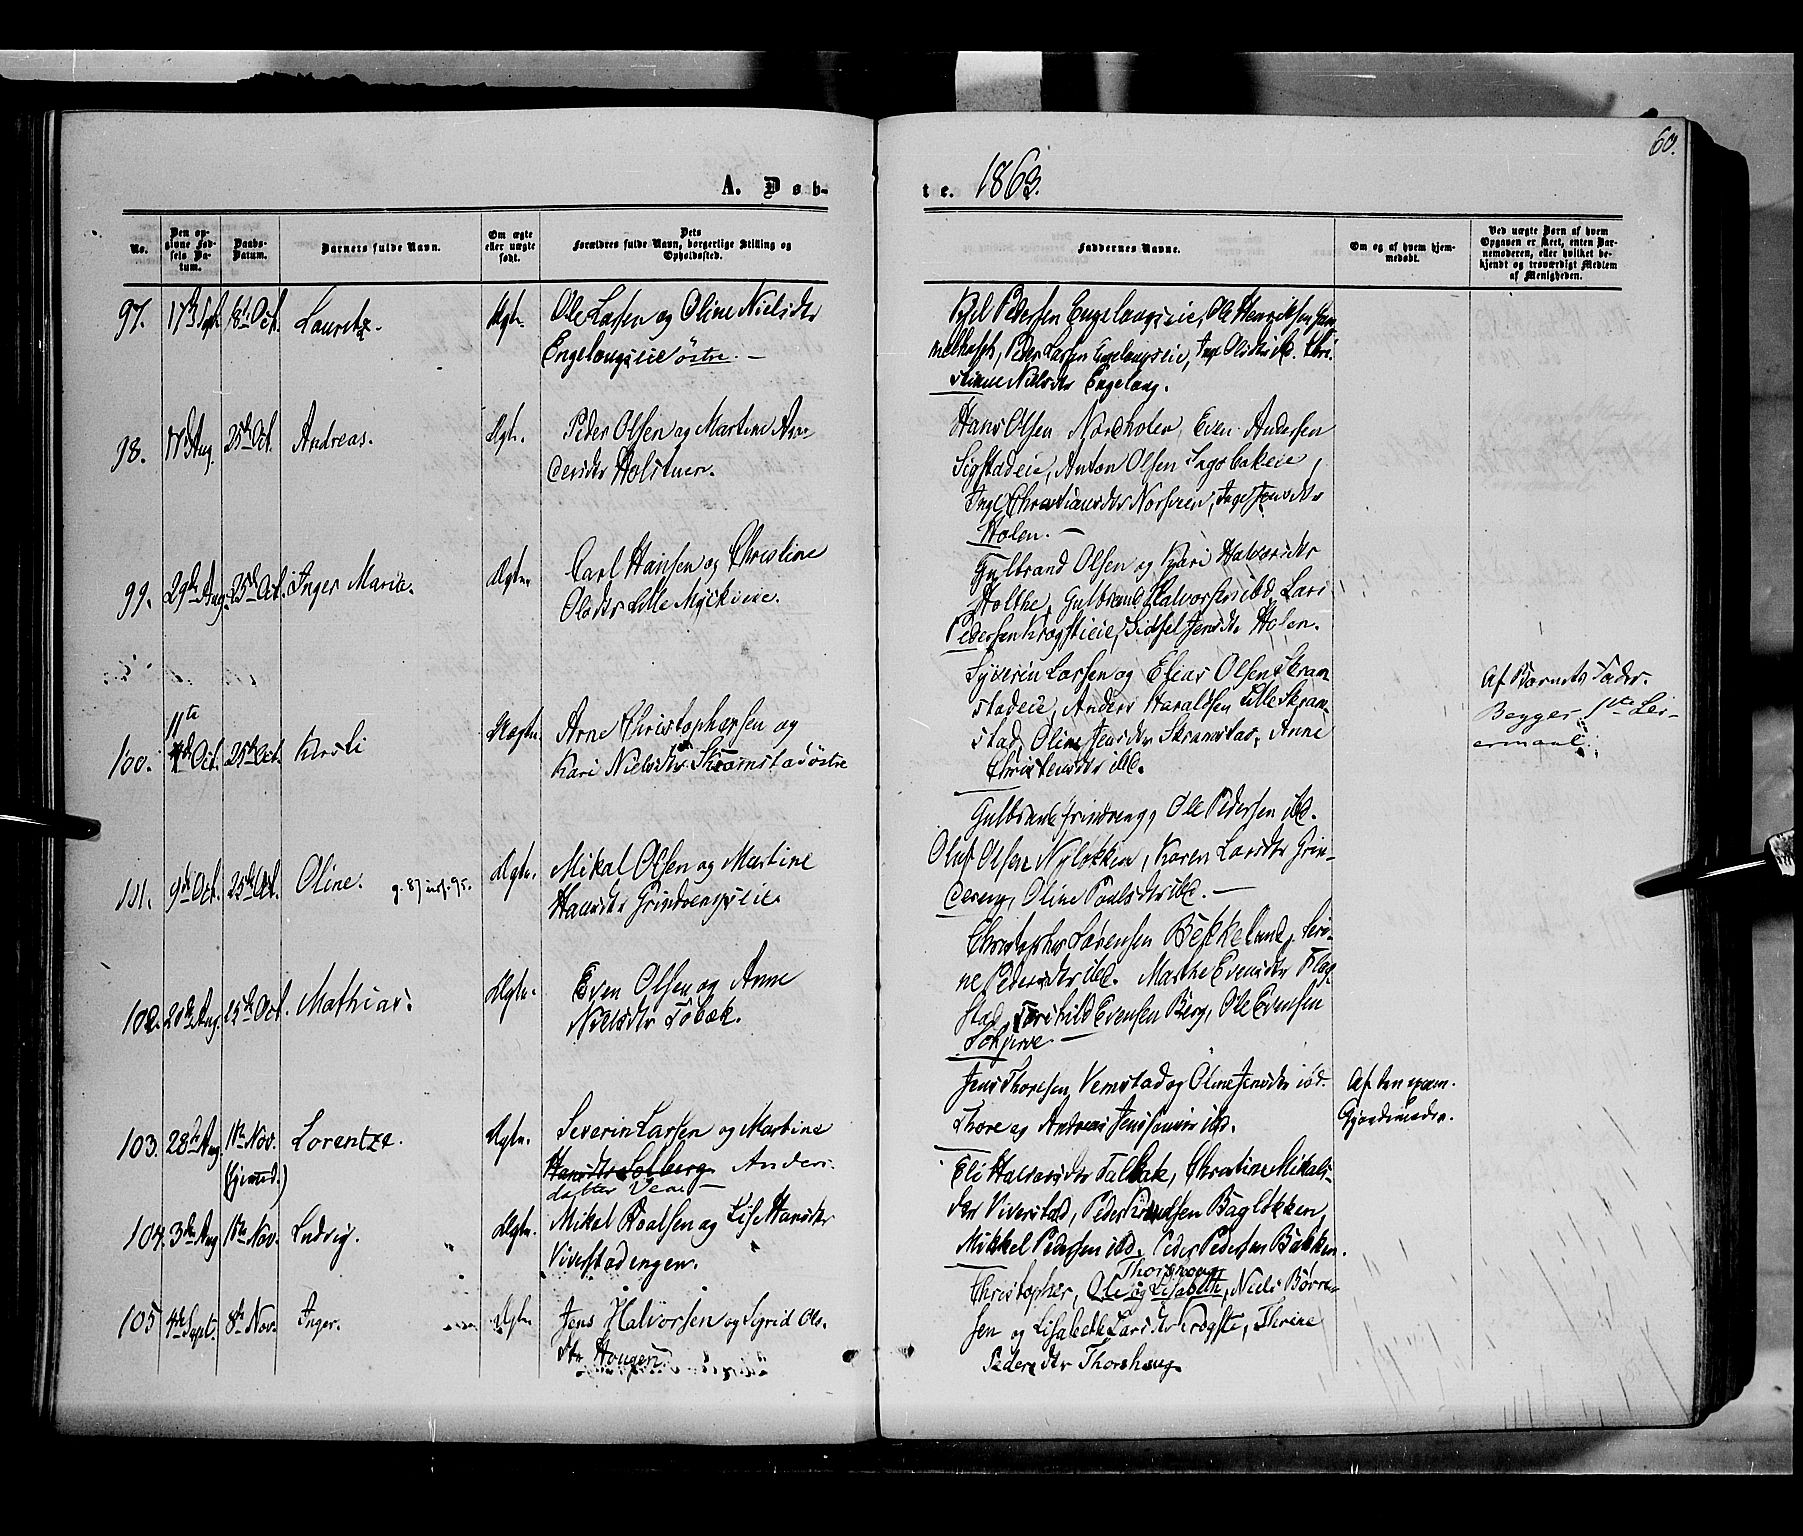 60.
A. Døb-
te. 1863.
No.
Den op-
givne Fød-
sels Da-
tum.
Daabs-
Datum.
Barnets fulde Navn.
Om ægte
eller uægte
født.
Dets
Forældres fulde Navn, borgerlige Stilling og
Opholdssted.
Faddernes Navne.
Om og af hvem hjem-
medøbt.
Ved uægte Børn af hvem
Opgaven er skeet, enten Bar-
nemoderen, eller hvilket be-
kjendt og troværdigt Medlem
af Menigheden.
97. 17de Sept. 18de Oct. Lauritz. Ægte.
Ole Larsen og Oline Nielsdtr
Engelaugseie østre. —
Pedersen Engelaugseie, Ole Henriksen
Peder Larsen Engelaugseie, Olsdtr ibd. Chri-
stiane Nielsdtr Engelaug.
98. Aug. 25de Oct. Andreas. Ægte.
Peder Olsen og Martine An-
dersdtr Holstuen.
Hans Olsen Nordholen, Even Andersen
Sigstadeie, Anton Olsen
Christiansdtr Jensdtr
Holen. —
99. 29de Aug. 25de Oct. Inger Marie. Ægte.
Carl Hansen og Christine
Olsdtr Lille
Gulbrand Olsen og Kari Halvorsdtr
Holthe, Gulbrand Halvorsen ibd, Lars
Pedersen Krogstieie, Sidsel Jensdtr Holen.
100. 11te Oct. 25de Oct. Kirsti Uægte.
Arne Christophersen og
Kari Nielsdtr Skramstad østre
Syverin Larsen og Elias Olsen Skram-
stadeie, Anders Haraldsen Lille Skram-
stad, Oline Jensdtr Skramstad, Anne
Christensdtr ibd.
Af Barnets Fader.
Begges 1ste Lei-
ermaal.
101. 9de Oct. 25de Oct. Oline. Ægte.
Mikal Olsen og Martine
Hansdtr Grindvengseie.
Gulbrand Grindveng, Ole Pedersen ibd.
Oluf Olsen Nyløkken, Karen Larsdtr Grin-
dveng, Oline Paulsdtr ibd. —
102. Aug. 25de Oct. Mathias. Ægte.
Even Olsen og Anne
Nielsdtr
Christopher Sørensen Bækkelund, Seri-
ne Pedersdtr ibd. Marthe Evensdtr Flag-
stad, Evensen Berg, Ole Evensen
103. 28de Aug. 1ste Nov. Lorentze. Ægte.
(hjemd.)
Severin Larsen og Martine
Hansdtr Solberg Anders-
datter
Jens Thoresen Vemstad og Oline Jensdtr ibd.
Thore og Andreas ibd.
Af den exam.
Gjordemoder.
104. 3de Aug. 1ste Nov. Ludvig. Ægte.
Mikal Hoalsen og Lise Hansdtr
Viverstadengen.
Eli Halvorsdtr Christine Mikals-
dtr Viverstad, Peder Bagløkken,
Mikkel Pedersen ibd. Peder Pedersen Bakken.
105 4de Sept. 8de Nov. Inger. Ægte.
Jens Halvorsen og Sigrid Ols-
dtr Haugen
Thorshaug
Christopher, Ole og Lisabeth, Niels Børre-
sen og Lisabeth Larsdtr Krogste, Thrine
Pedersdtr Thorshaug